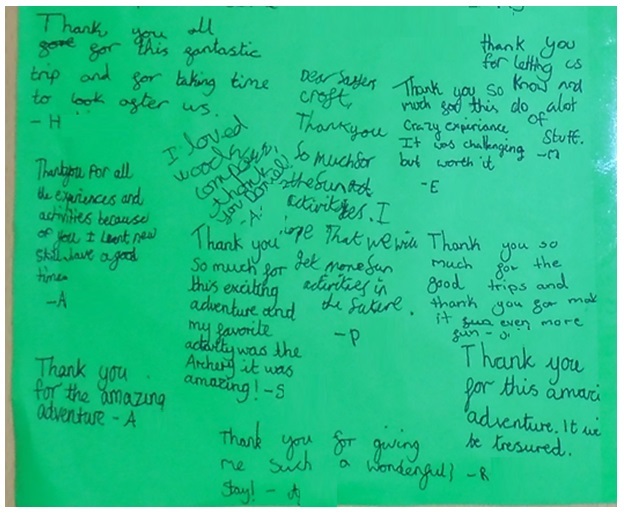 Thank you all
for this fantastic
trip and for taking time
to look after us.
- H
thank you
for letting us
know and
do alot
of
Stuff.
-M
Dear
croft,
Thankyou
So much for
the Sun
activityes. I
hope That we will
get more Sun
activities in
the future.
-P
Thank you so
much for this
Crazy experiance.
It was challenging
but worth it
-E
I loved
woods
thank
you Daniel!
-A.
Thankyou for all
the experiences and
activities because
of you I learnt new
still have a good
time
-A
Thank you
So much for
this exciting
adventure and
my favorite
activity was the
Archery it was
amazing! -S
Thank you so
much for the
good trips and
thank you for mak
it even more
fun - J.
Thank you
for the amazing
adventure - A
Thank you
for this amazi
adventure. It wi
be tresured.
Thank you for giving
me such a wonderful
Stay! -
- R